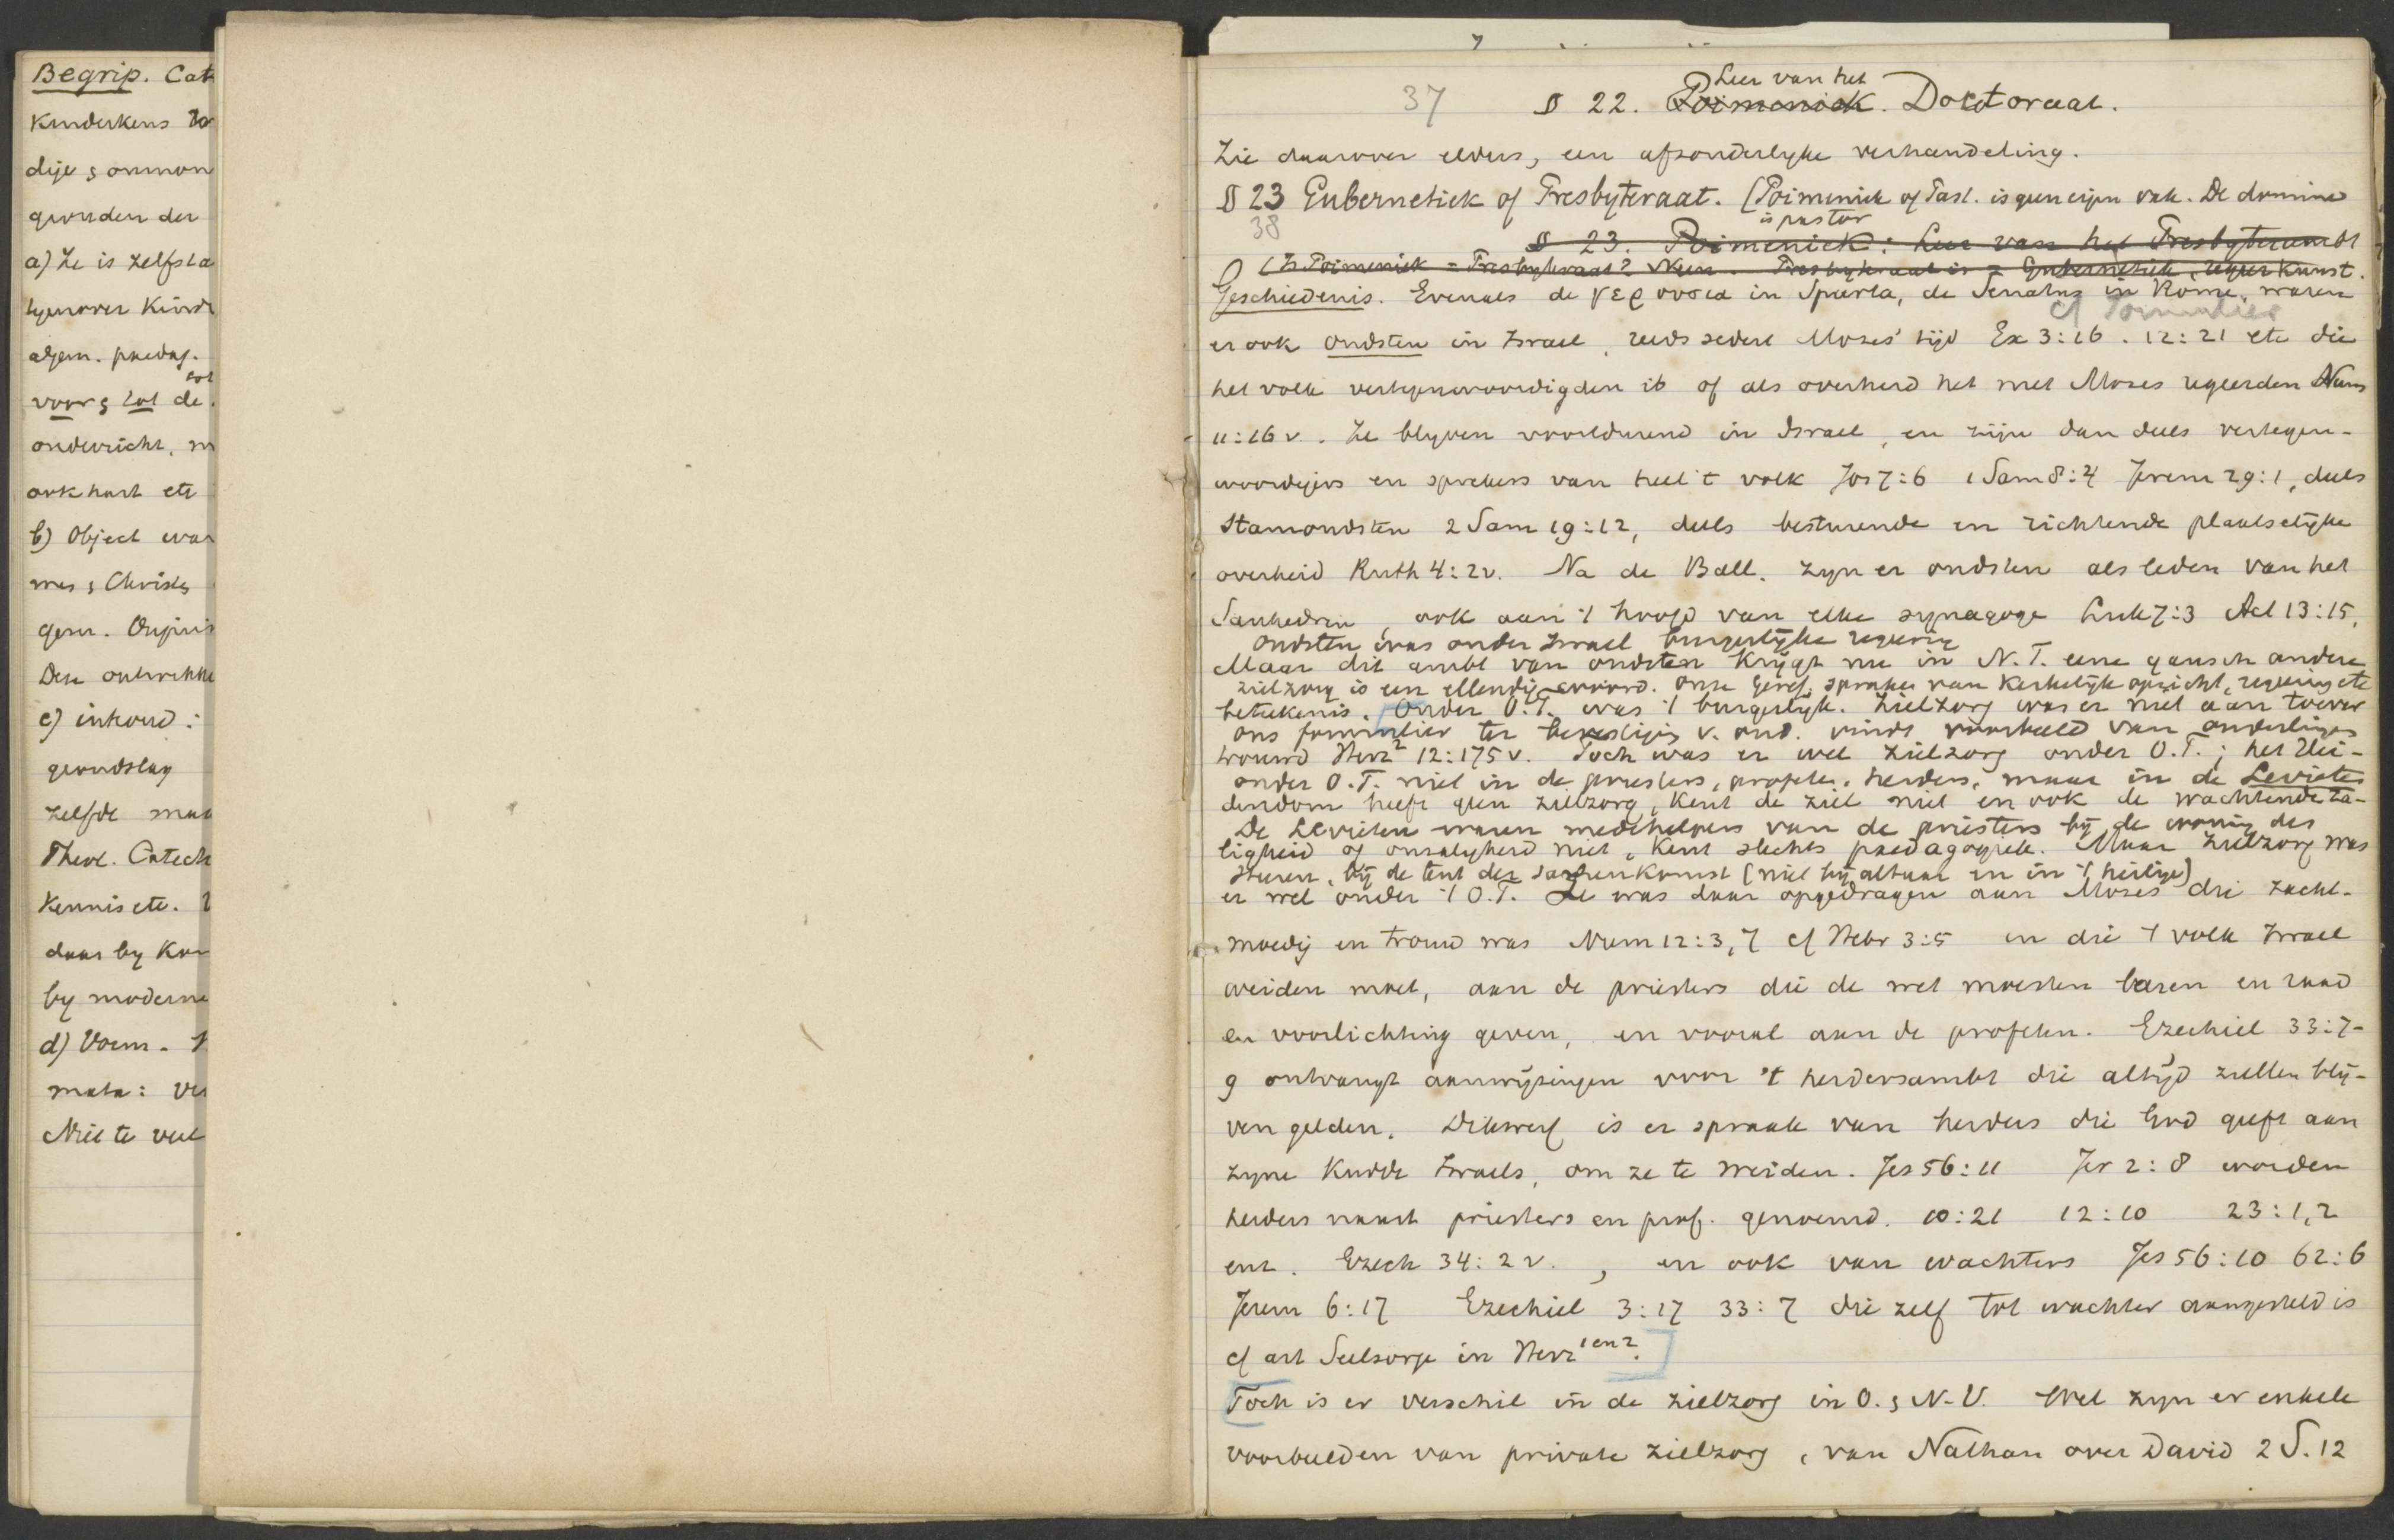 Begrip. Cat
Kinderkens
dije & onmon
gronden der
a) Ze is zelfsta
tegenover Kind
algem. paedag.
tot
voor & tot de
onderricht, m
ook hart etc
b) Object was
mes & Christ
gem.
Deze ontwikke
c) inhoud:
grondslag
zelfde mat
Theol. Catech
Kennis etc.
daar by Kon
by moderne
d) Vorm.
mata: ver
Niet te veel
Leer van het
37 § 22. Poimeniek. Doctoraat.
Zie daarover elders, een afzonderlyke verhandeling.
§ 23 Gubernetiek of Presbyteraat. (Poimeniek of Past. is geen eigen vak. De dominé
is pastor
38 § 23. Poimeniek: Leer van het Presbyterambt
(Is Poimeniek = Presbyteraat? Neen. Presbyteraat is = Gubernetiek, regeerkunst.
Geschiedenis. Evenals de γερουσια in Sparta, de Senatus in Rome, waren
cf Formulier
er ook oudsten in Israel, reeds sedert Mozes' tijd Ex 3:16. 12:21 etc die
het volk vertegenwoordigden of als overheid het met Mozes regeerden Num
11:16 v. Ze blyven voortdurend in Israel, en zijn dan deels vertegen-
woordigers en sprekers van heel 't volk Jos 7:6 1 Sam 8:4 Jerem 29:1, deels
Stamoudsten 2 Sam 19:12, deels besturende en richtende plaatselyke
overheid Ruth 4:2v. Na de Ball. zyn er oudsten als leden van het
Sanhedrin, ook aan 't hoofd van elke synagoge Luk 7:3 Act 13:15,
Oudsten was onder Israel burgerlijke regering
Maar dit ambt van oudsten krijgt nu in N.T. eene gansch andere
zielzorg is een ellendig woord. Onze Geref. spraken van Kerkelijk opzicht, regering etc
beteekenis. Onder O.T. was 't burgerlyk. Zielzorg was er niet aan toever
Ons formulier ter bevestiging v. oud. vindt voorbeeld van ouderlingen
trouwd Herz² 12:175 v. Toch was er wel zielzorg onder O.T.; het Hei-
onder O.T. niet in de priesters, profeten, herders, maar in de Levieten
dendom heeft geen zielzorg, kent de ziel niet en ook de wachtende za-
De Levieten waren medehelpers van de priesters bij de woning des
ligheid of onzaligheid niet, kent slechts paedagogiek. Maar zielzorg was
Heren, bij de tent der samenkomst (niet bij altaar en in 't heilige)
er wel onder 't O.T. Ze was daar opgedragen aan Mozes die zacht-
moedig en trouw was Num 12:3,7 cf Hebr 3:5 en die 't volk Israel
weiden moet, aan de priesters die de wet moesten leeren en raad
en voorlichting geven, en vooral aan de profeten. Ezechiel 33:7-
9 ontvangt aanwijzingen voor 't herdersambt die altijd zullen blij-
ven gelden. Dikwerf is er spraak van herders die God geeft aan
zyne Kudde Israels, om ze te weiden. Jes 56:11 Jer 2:8 worden
herders naast priesters en prof. genoemd. 10:21 12:10 23:1,2
enz. Ezech 34:2 v., en ook van wachters Jes 56:10 62:6
Jerem 6:17 Ezechiel 3:17 33:7 die zelf tot wachter aangesteld is
cf art Seelsorge in Herz 1 en 2.
Toch is er verschil in de zielzorg in O. & N.V. Wel zyn er enkele
voorbeelden van private zielzorg, van Nathan over David 2 S. 12